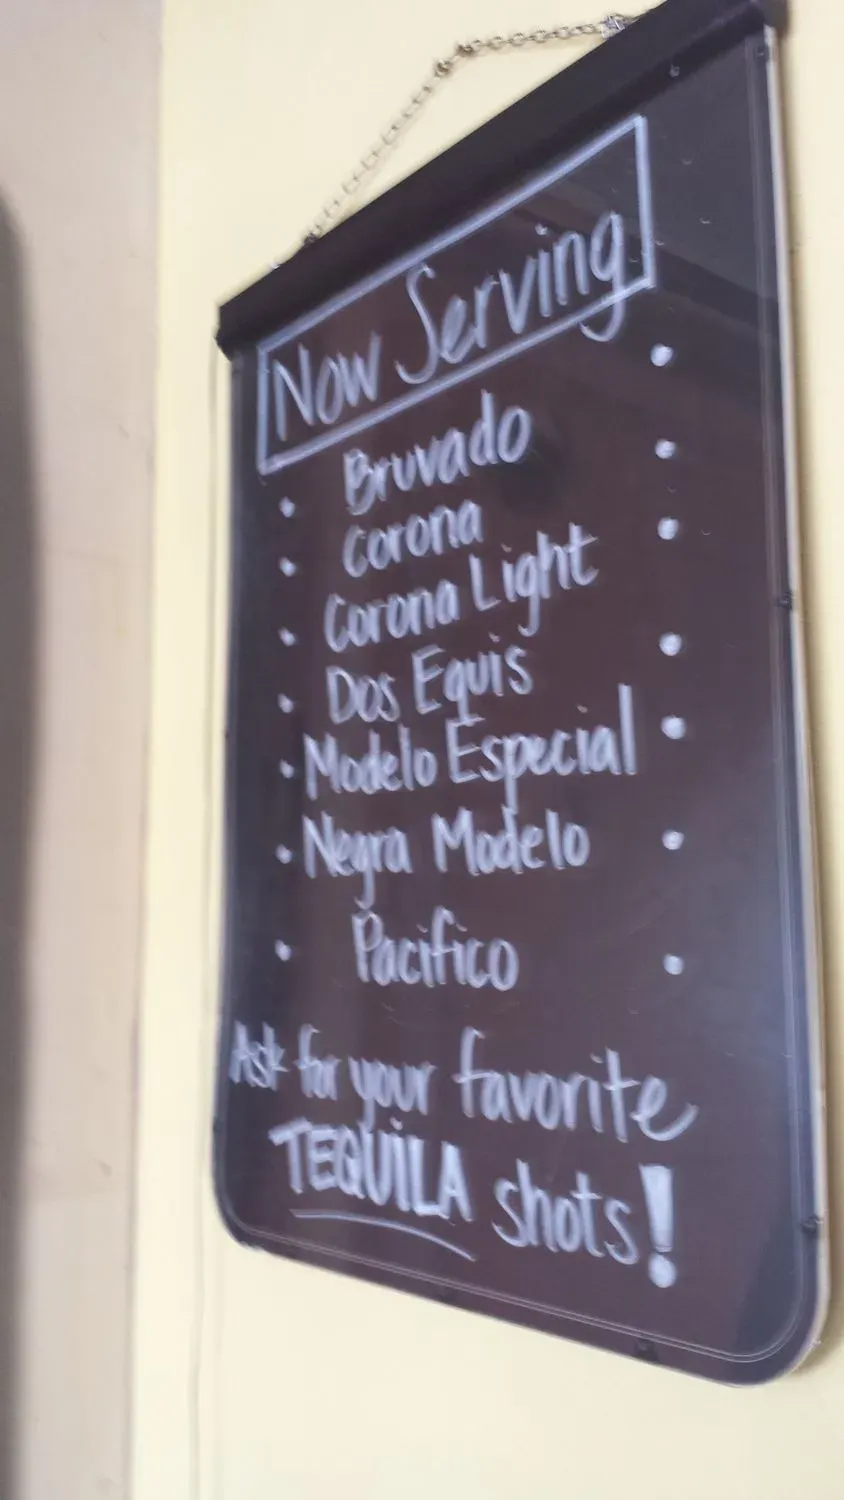 Now Serving
• Bruvado •
• Corona •
• Corona Light •
• Dos Equis •
• Modelo Especial •
• Negra Modelo •
• Pacifico •
Ask for your favorite
TEQUiLA shots!